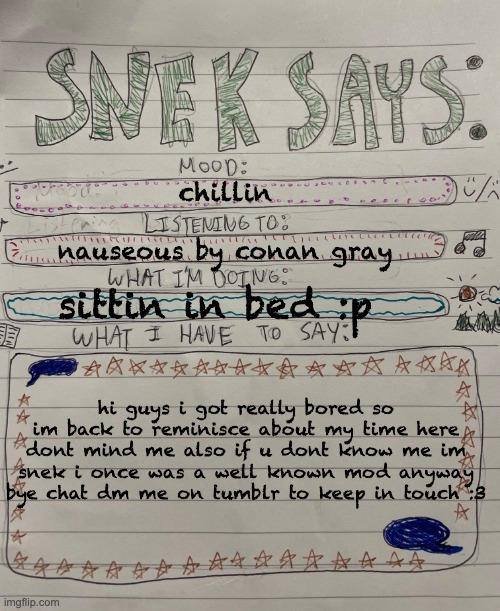 SNEK SAYS:
MOOD:
chillin
LISTENING TO:
nauseous by conan gray
WHAT I'M DOING:
sittin in bed :p
WHAT I HAVE TO SAY:
hi guys i got really bored so
im back to reminisce about my time here
dont mind me also if u dont know me im
snek i once was a well known mod anyway
bye chat dm me on tumblr to keep in touch :3
imgflip.com